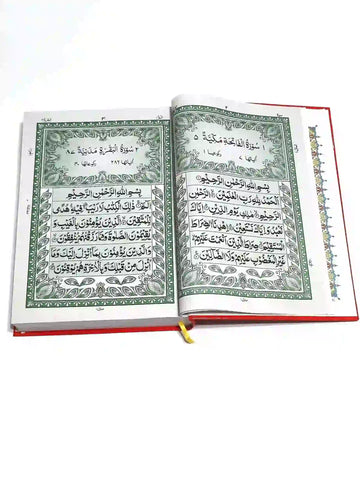 سُوْرَةُ الْفَاتِحَةِ مَكِّيَّةٌ ٥
اٰيَاتُهَا ٧ رُكُوْعُهَا ١
بِسْمِ اللّٰهِ الرَّحْمٰنِ الرَّحِيْمِ
اَلْحَمْدُ لِلّٰهِ رَبِّ الْعٰلَمِيْنَ الرَّحْمٰنِ
الرَّحِيْمِ مٰلِكِ يَوْمِ الدِّيْنِ اِيَّاكَ
نَعْبُدُ وَاِيَّاكَ نَسْتَعِيْنُ اِهْدِنَا الصِّرَاطَ
الْمُسْتَقِيْمَ صِرَاطَ الَّذِيْنَ اَنْعَمْتَ عَلَيْهِمْ
غَيْرِ الْمَغْضُوْبِ عَلَيْهِمْ وَلَا الضَّآلِّيْنَ
٢ سُوْرَةُ الْبَقَرَةِ مَدَنِيَّةٌ ٨٧
اٰيَاتُهَا ٢٨٦ رُكُوْعَاتُهَا ٤٠
بِسْمِ اللّٰهِ الرَّحْمٰنِ الرَّحِيْمِ
الٓمّٓ ذٰلِكَ الْكِتٰبُ لَا رَيْبَ فِيْهِ هُدًى
لِّلْمُتَّقِيْنَ الَّذِيْنَ يُؤْمِنُوْنَ بِالْغَيْبِ وَ
يُقِيْمُوْنَ الصَّلٰوةَ وَمِمَّا رَزَقْنٰهُمْ يُنْفِقُوْنَ
وَالَّذِيْنَ يُؤْمِنُوْنَ بِمَآ اُنْزِلَ اِلَيْكَ وَمَآ
اُنْزِلَ مِنْ قَبْلِكَ وَبِالْاٰخِرَةِ هُمْ يُوْقِنُوْنَ